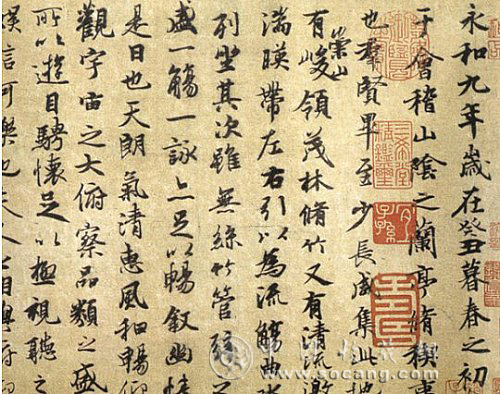 永和九年歲在癸丑暮春之初
于會稽山陰之蘭亭脩禊事
也羣賢畢至少長咸集此地
有崇山峻領茂林脩竹又有清流激
湍暎帶左右引以為流觴曲水
列坐其次雖無絲竹管弦之
盛一觴一詠亦足以暢敘幽情
是日也天朗氣清惠風和暢仰
觀宇宙之大俯察品類之盛
所以遊目騁懷足以極視聽之
娛信可樂也夫人之相與俯仰
三希堂精鑑璽
宜子孫
www.socang.com